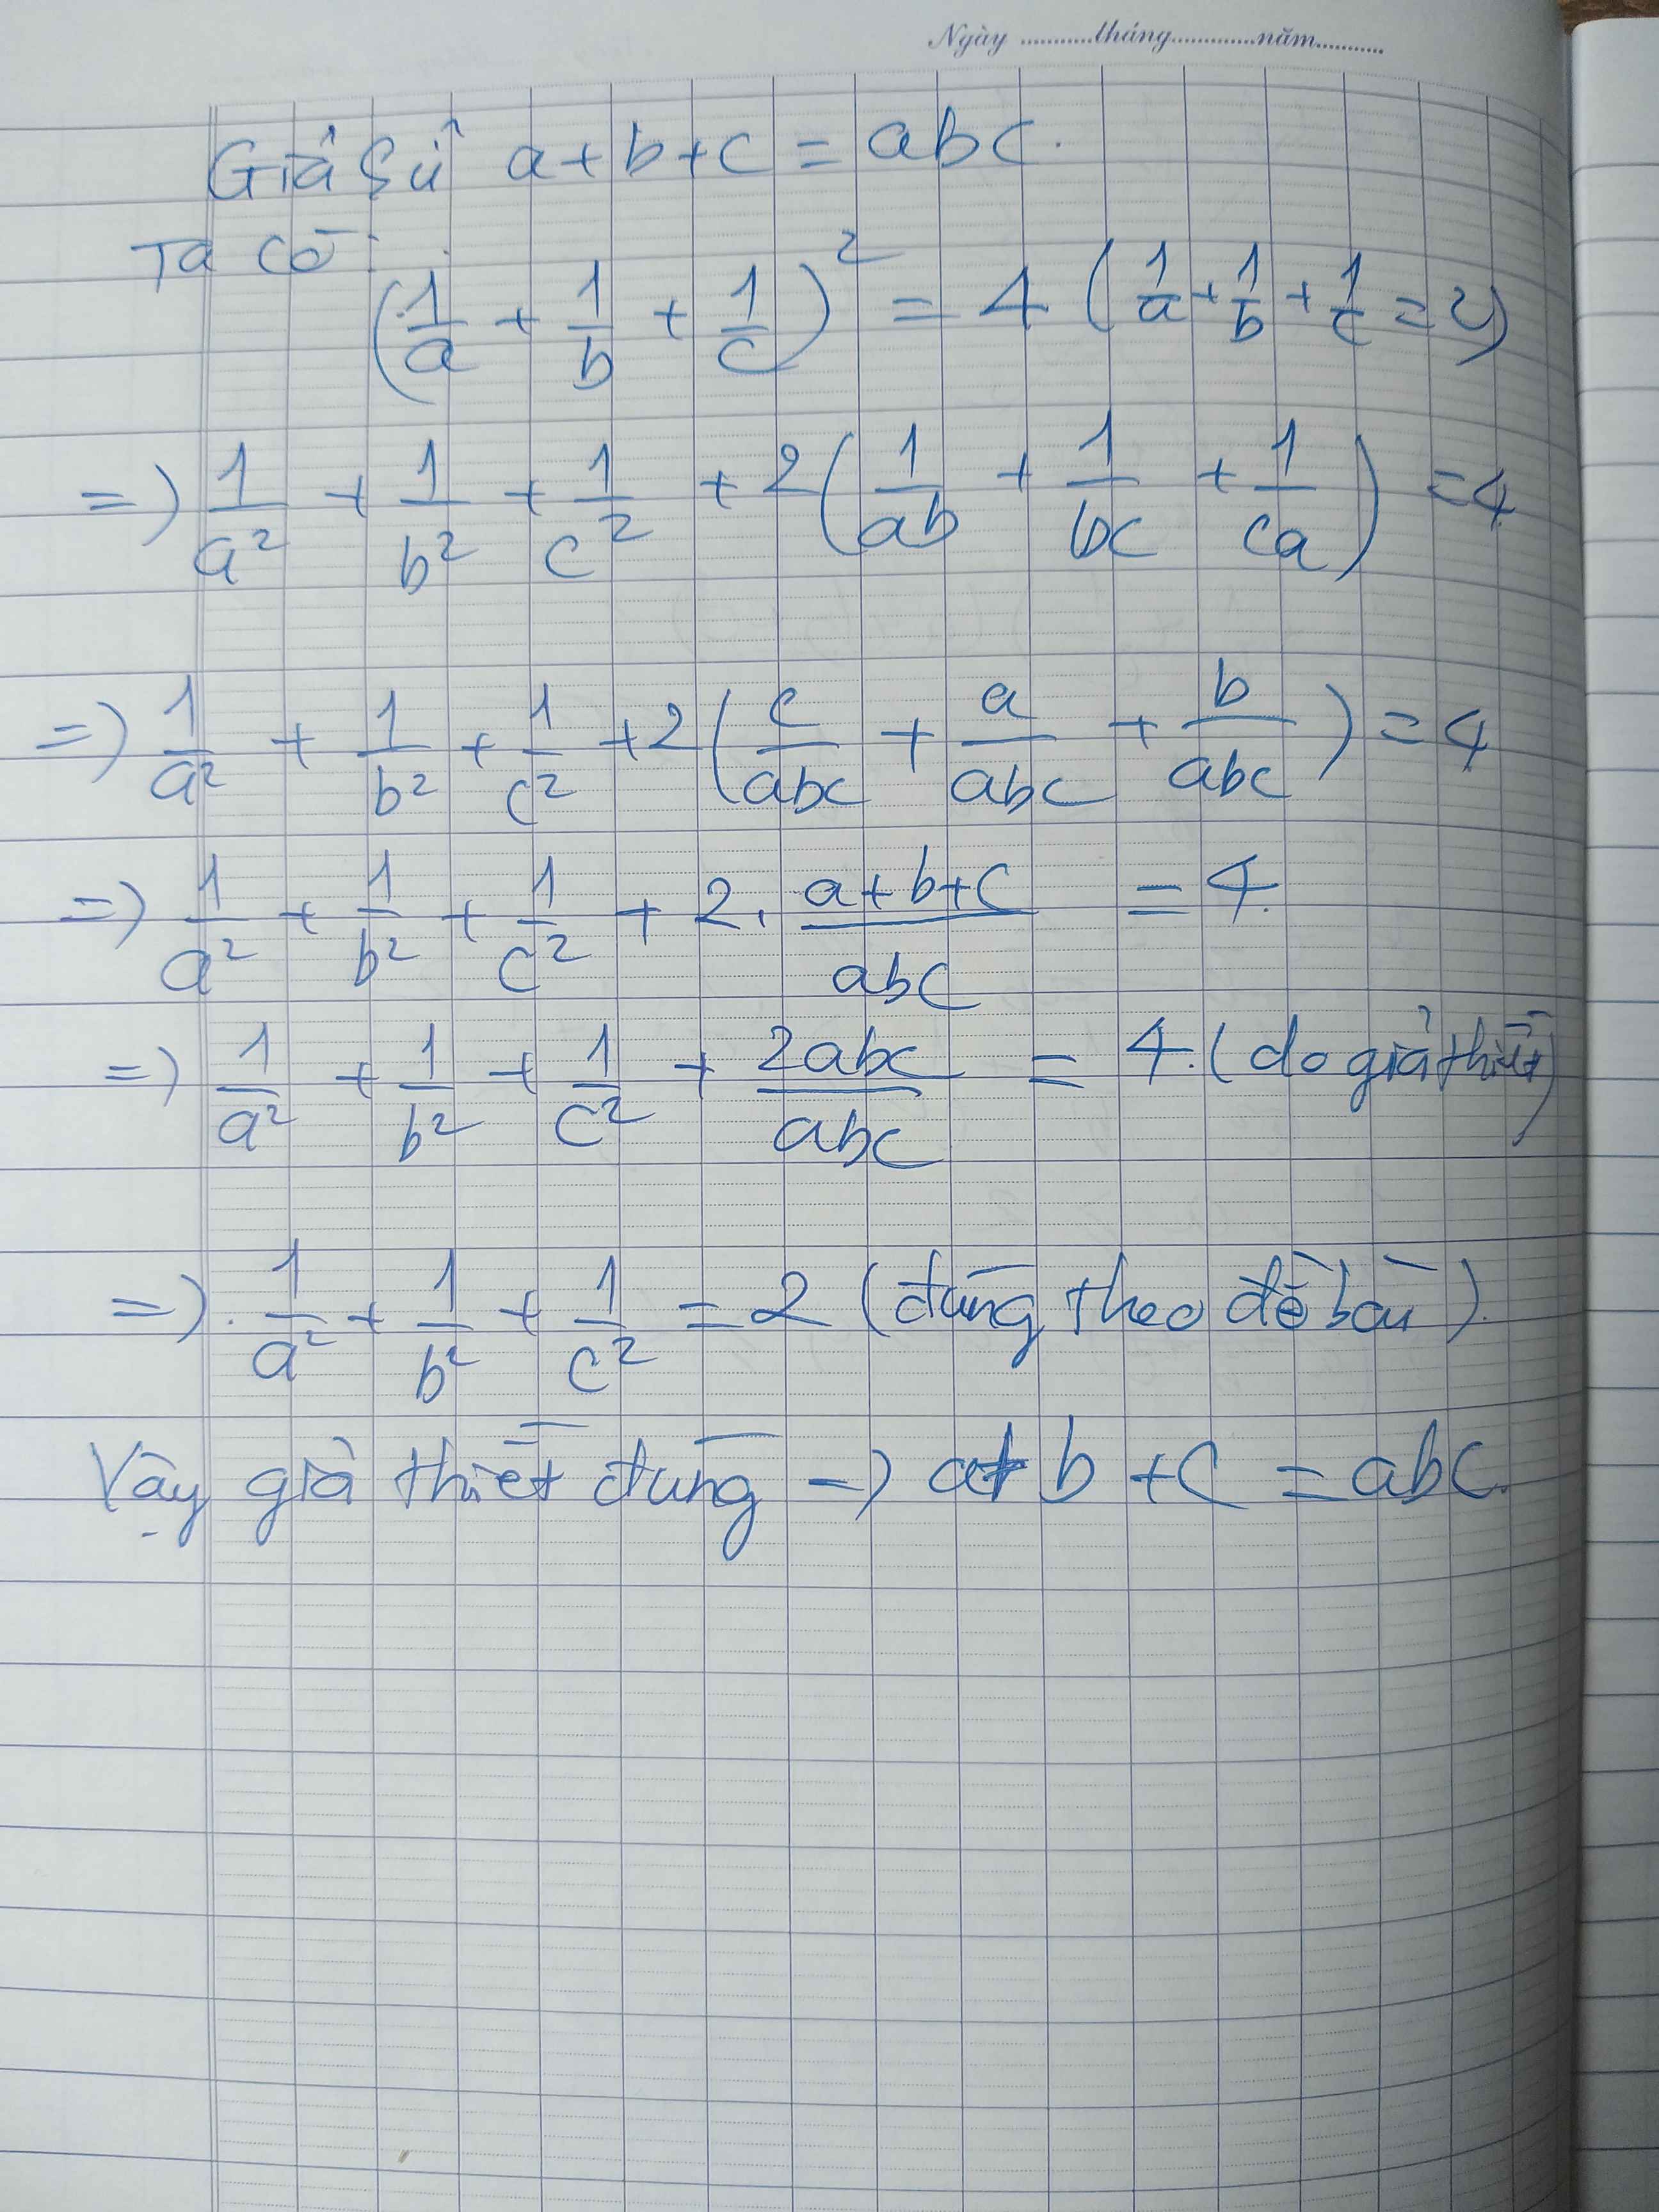 Ngày ...........tháng.............năm...........
Giả sử a + b + c = abc.
Ta có:
(1/a + 1/b + 1/c)² = 4 (1/a + 1/b + 1/c = 2)
=> 1/a² + 1/b² + 1/c² + 2(1/ab + 1/bc + 1/ca) = 4
=> 1/a² + 1/b² + 1/c² + 2(c/abc + a/abc + b/abc) = 4
=> 1/a² + 1/b² + 1/c² + 2. (a+b+c)/abc = 4.
=> 1/a² + 1/b² + 1/c² + 2abc/abc = 4. (do giả thiết)
=>. 1/a² + 1/b² + 1/c² = 2 (đúng theo đề bài).
Vậy giả thiết đúng => a + b + c = abc.